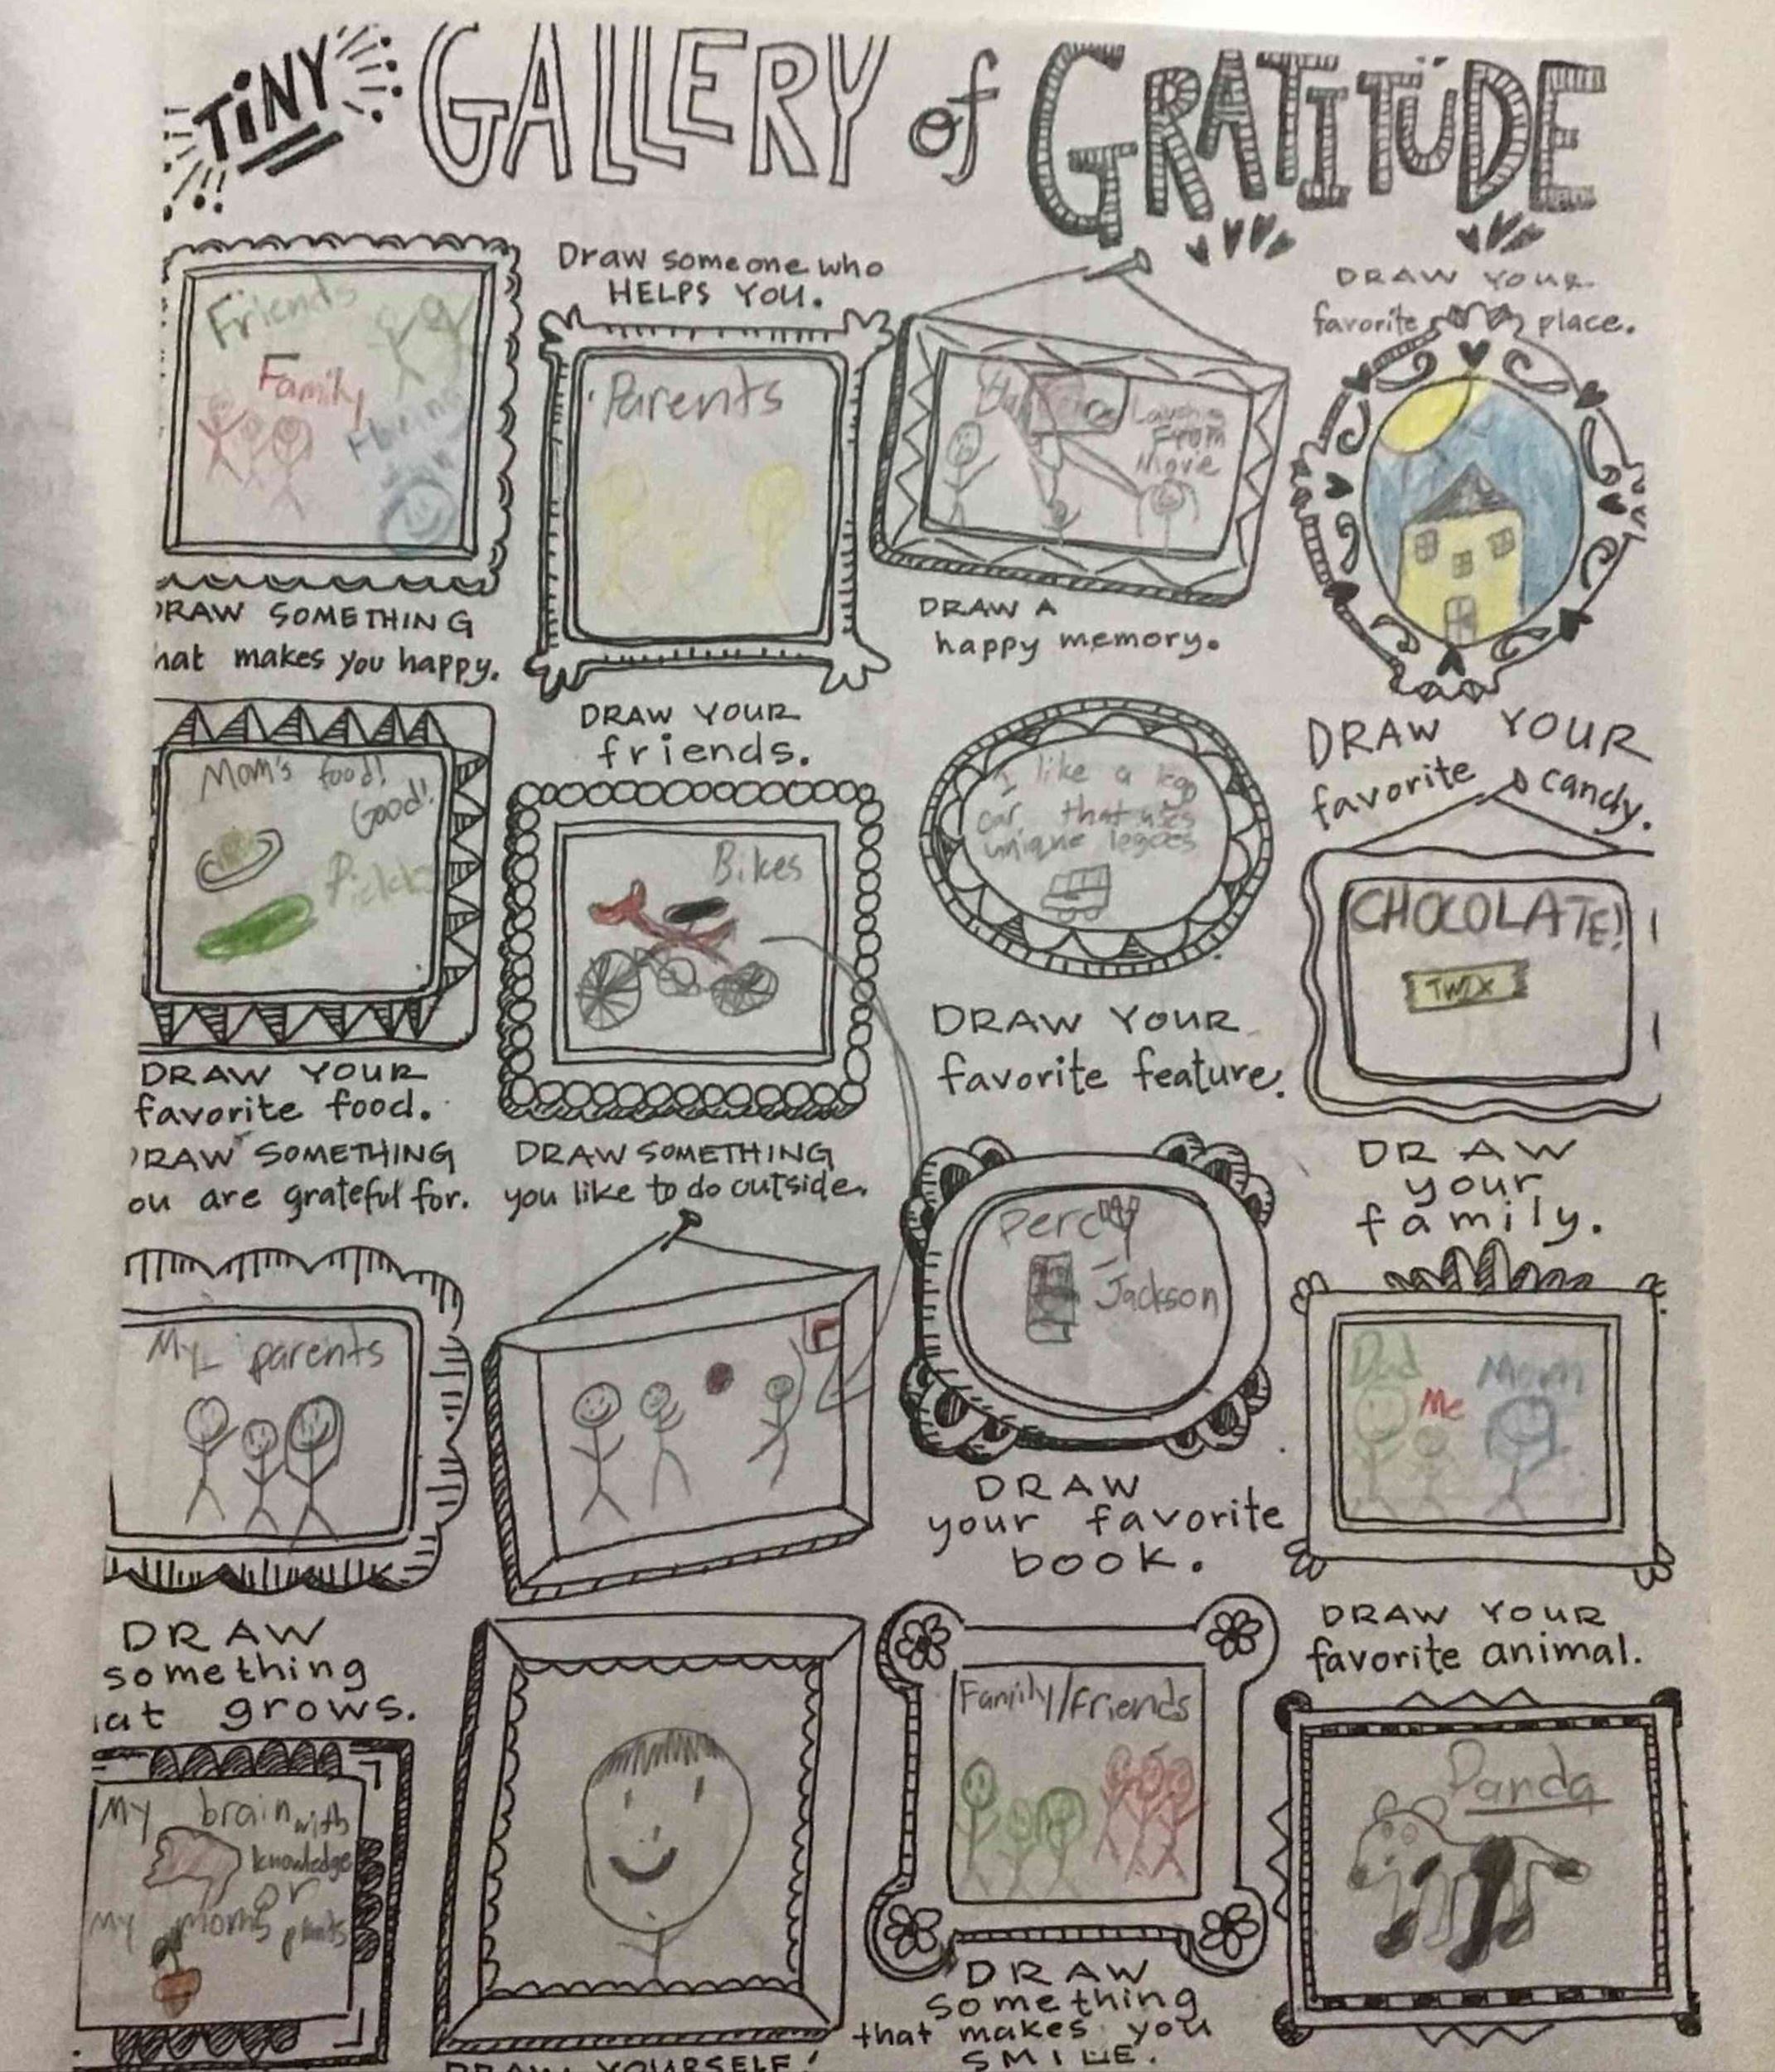 TiNY GALLERY of GRATITUDE
Friends
Family
Having
fun
RAW SOMETHING
hat makes you happy.
Draw someone who
HELPS YOU.
Parents
Laughing
From
Movie
DRAW A
happy memory.
DRAW YOUR
favorite place.
Mom's food!
Good!
Pickles
DRAW YOUR
favorite food.
DRAW YOUR
friends.
Bikes
I like a lego
car that uses
unique legoes
DRAW YOUR
favorite feature.
DRAW YOUR
favorite candy.
CHOCOLATE!
TWIX
RAW SOMETHING
ou are grateful for.
My parents
DRAW SOMETHING
you like to do outside.
Percy
Jackson
DRAW
your favorite
book.
DRAW
your
family.
Dad
Me
Mom
DRAW
something
at grows.
My brain with
knowledge
or
My moms plants
DRAW YOURSELF!
Family/Friends
DRAW
something
that makes you
SMILE.
DRAW YOUR
favorite animal.
Panda